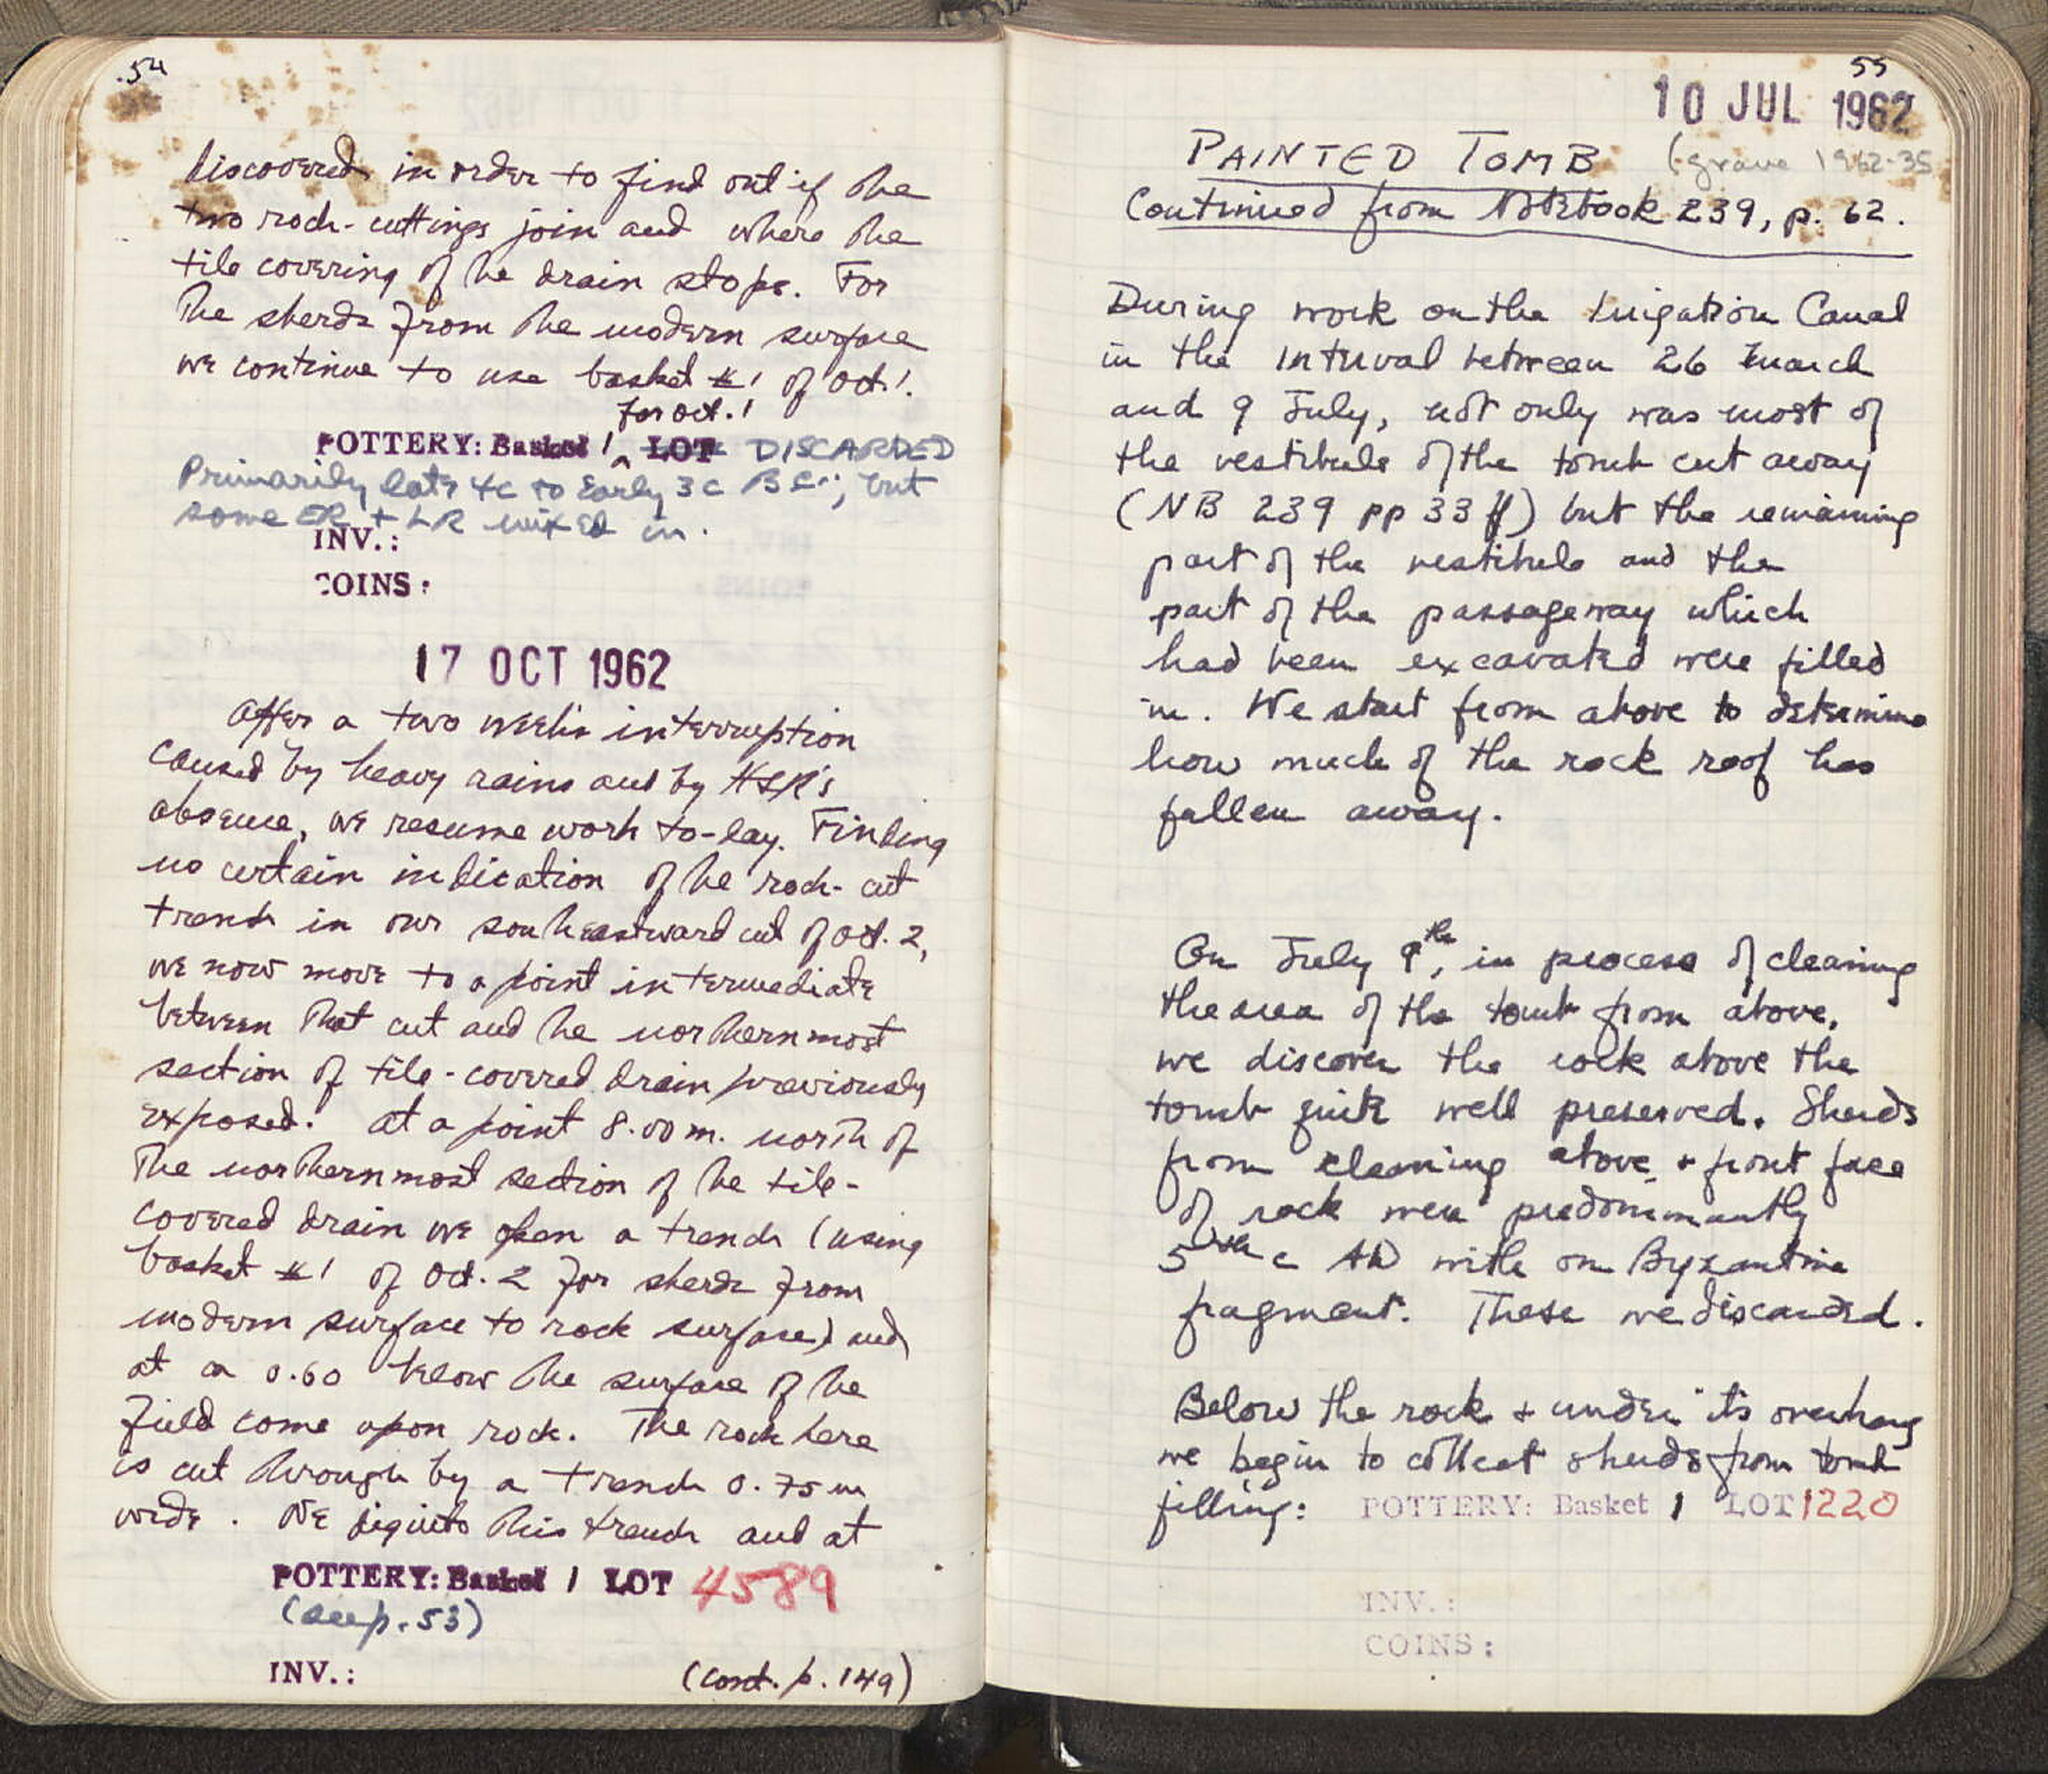 54
discovered in order to find out if the
two rock-cuttings join and where the
tile covering of the drain stops. For
the sherds from the modern surface
we continue to use basket #1 of Oct. 1.
for Oct. 1
POTTERY: Basket 1 LOT DISCARDED
Primarily late 4c to Early 3c B.C.; but
some ER + LR mixed in.
INV.:
COINS:
17 OCT 1962
After a two weeks interruption
caused by heavy rains and by HSR's
absence, we resume work to-day. Finding
no certain indication of the rock-cut
trench in our southeastward cut of Oct. 2,
we now move to a point intermediate
between that cut and the northernmost
section of tile-covered drain previously
exposed. At a point 8.00 m. north of
the northernmost section of the tile-
covered drain we open a trench (using
basket #1 of Oct. 2 for sherds from
modern surface to rock surface) and
at a 0.60 below the surface of the
field come upon rock. The rock here
is cut through by a trench 0.75 m
wide. We dig into this trench and at
POTTERY: Basket 1 LOT 4589
(see p. 53)
INV.:
(cont. p. 149)
55
10 JUL 1962
PAINTED TOMB (grave 1962-35
Continued from Notebook 239, p. 62.
During work on the Irrigation Canal
in the interval between 26 March
and 9 July, not only was most of
the vestibule of the tomb cut away
(NB 239 pp 33 ff) but the remaining
part of the vestibule and the
part of the passageway which
had been excavated were filled
in. We start from above to determine
how much of the rock roof has
fallen away.
On July 9th, in process of cleaning
the area of the tomb from above,
we discover the rock above the
tomb quite well preserved. Sherds
from cleaning above + front face
of rock were predominantly
5th c AD with on Byzantine
fragment. These we discarded.
Below the rock + under its overhang
we begin to collect sherds from tomb
filling: POTTERY: Basket 1 LOT 1220
INV.:
COINS: